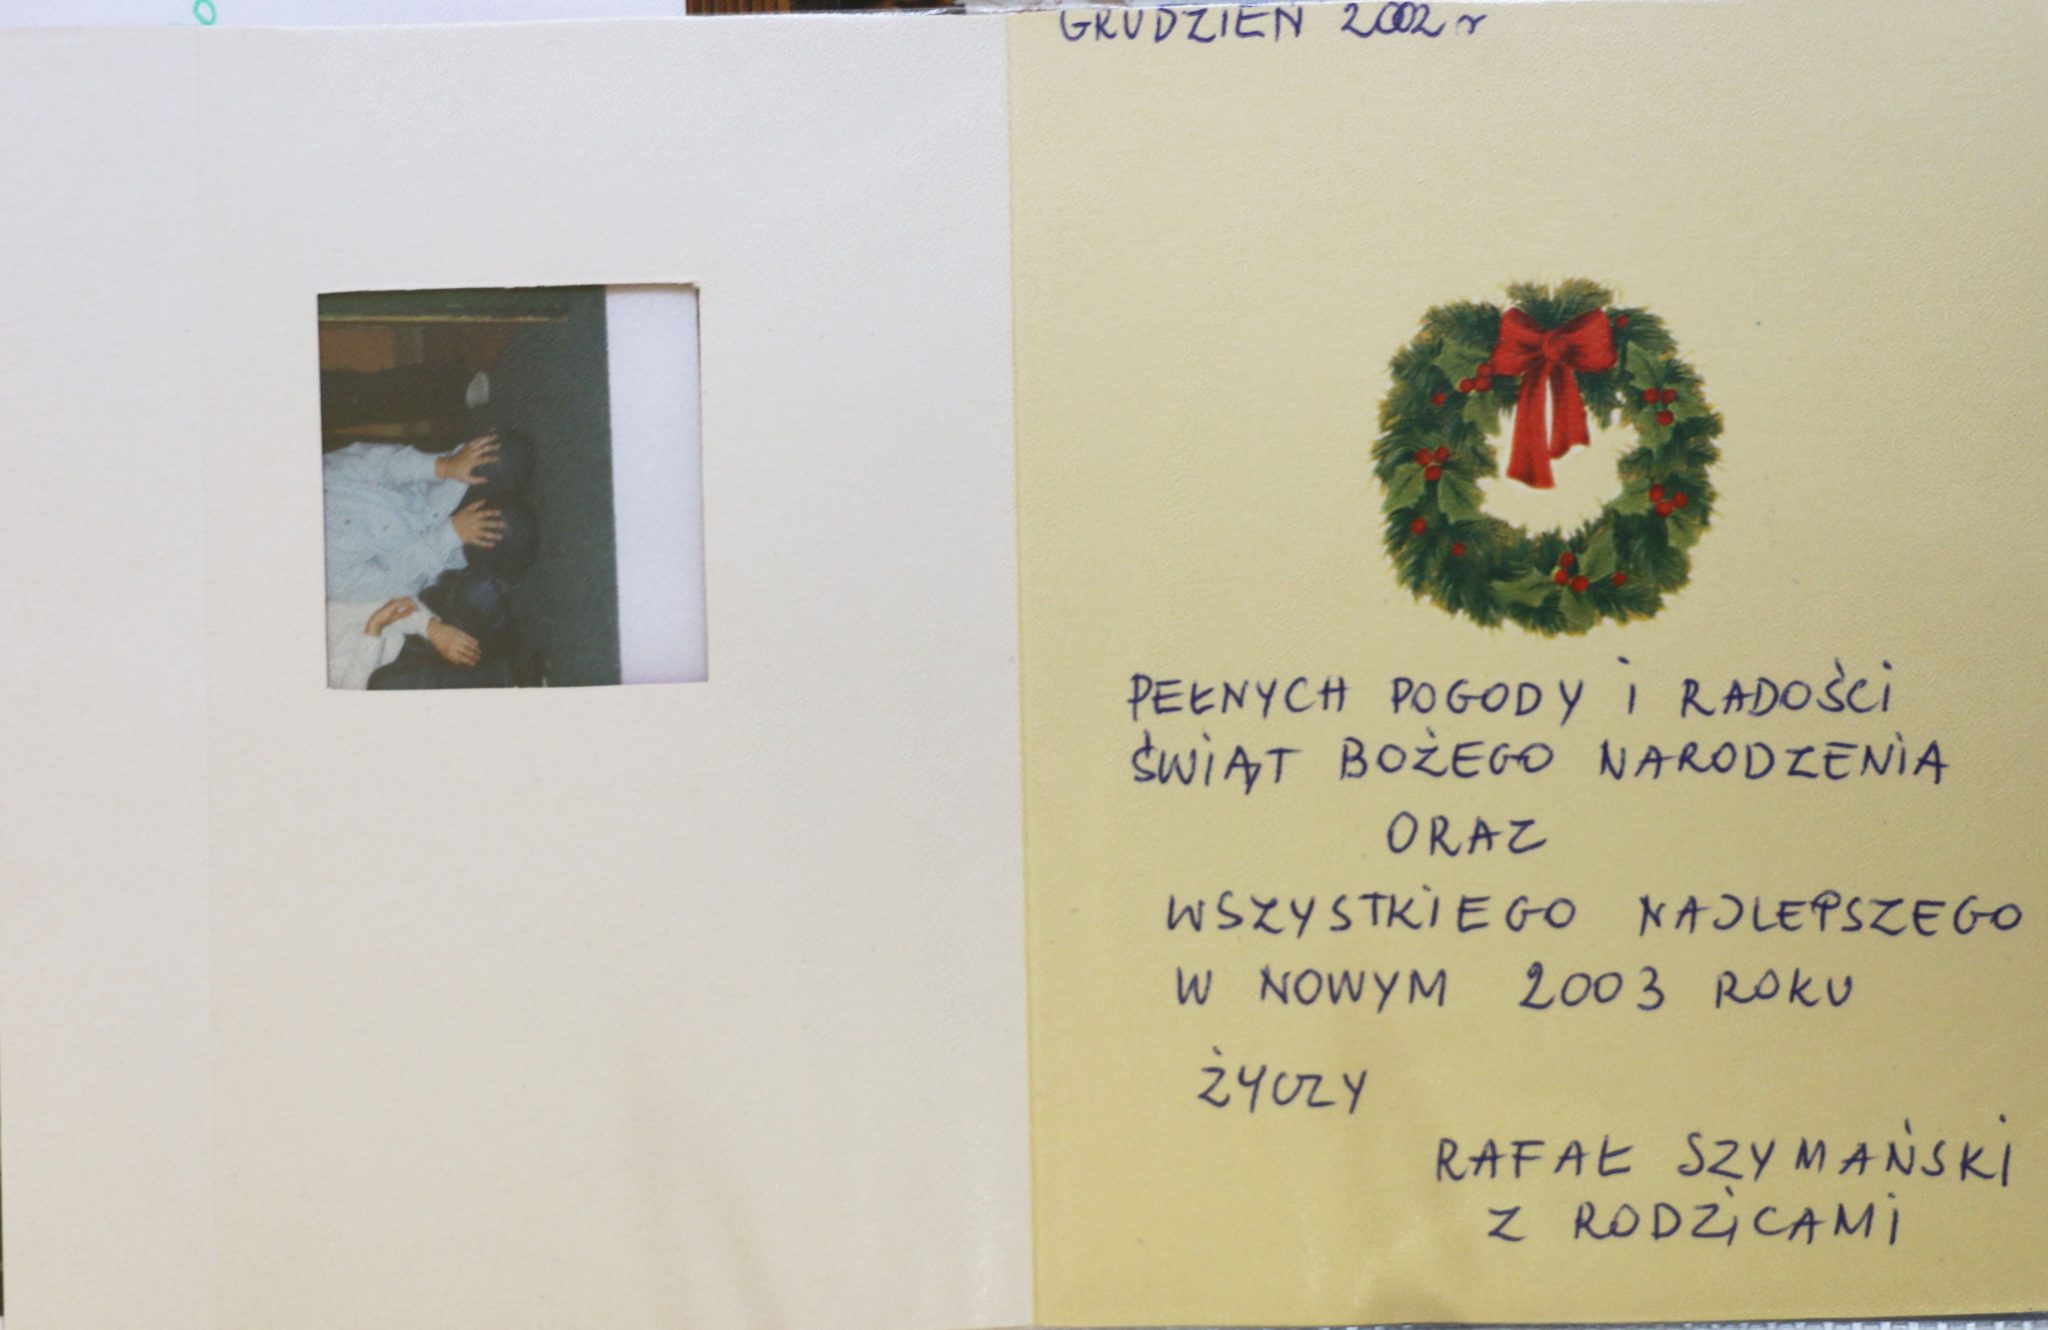 GRUDZIEŃ 2002 r
PEŁNYCH POGODY i RADOŚCI
ŚWIĄT BOŻEGO NARODZENIA
ORAZ
WSZYSTKIEGO NAJLEPSZEGO
W NOWYM 2003 ROKU
ŻYCZY
RAFAŁ SZYMAŃSKI
Z RODZICAMI